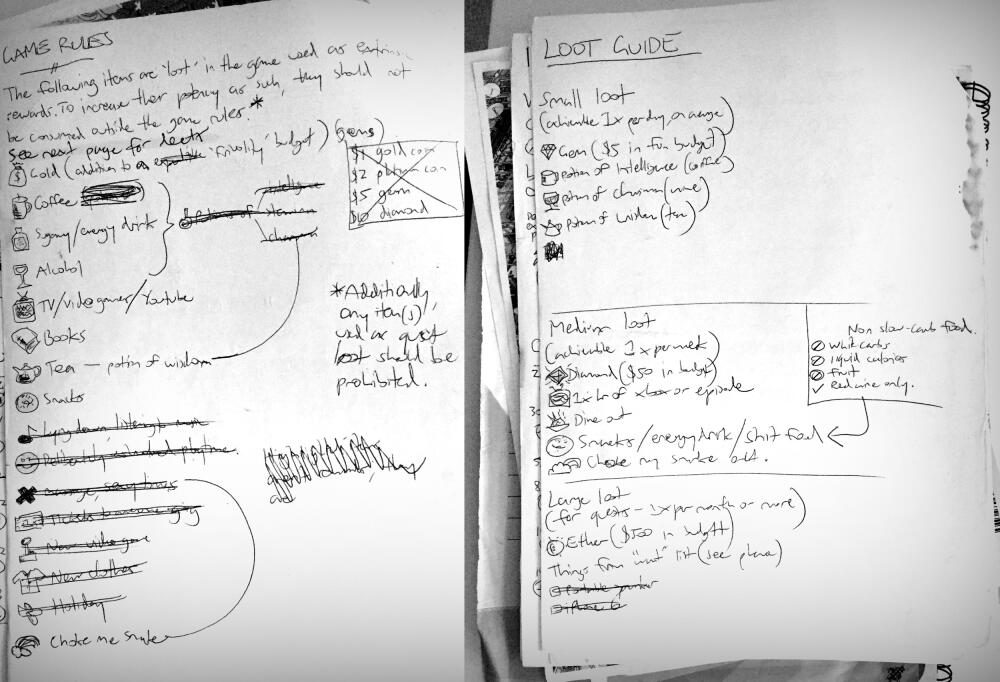 GAME RULES
The following items are 'loot' in the game used as extrinsic
rewards. To increase their potency as such, they should not
be consumed outside the game rules.*
See next page for deets
Gold (addition to 'frivolity' budget) (gems)
$1 gold coin
$2 platinum coin
$5 gem
$10 diamond
Coffee
Sugary/energy drink
Potion of
intelligence
stamina
charisma
Alcohol
TV/video games/Youtube
Books
Tea — potion of wisdom
Snacks
*Additionally,
any item(s)
used as quest
loot should be
prohibited.
Lying down, listening to music
Tickets to awesome gig
New video game
New clothes
Holiday
Choke me snake
LOOT GUIDE
Small loot
(achievable 1x per day, on average)
Gem ($5 in fun budget)
Potion of Intelligence (coffee)
Potion of Charisma (wine)
Potion of Wisdom (tea)
Medium loot
(achievable 1x per week)
Diamond ($50 in budget)
1x hr of xbox or episode
Dine out
Snacks/energy drink/shit food
Choke my snake out.
Non slow-carb food.
White carbs
liquid calories
fruit
✓ Red wine only.
Large loot
(for quests – 1x per month or more)
Ether ($500 in budget)
Things from "want" list (see phone)
iPhone 6